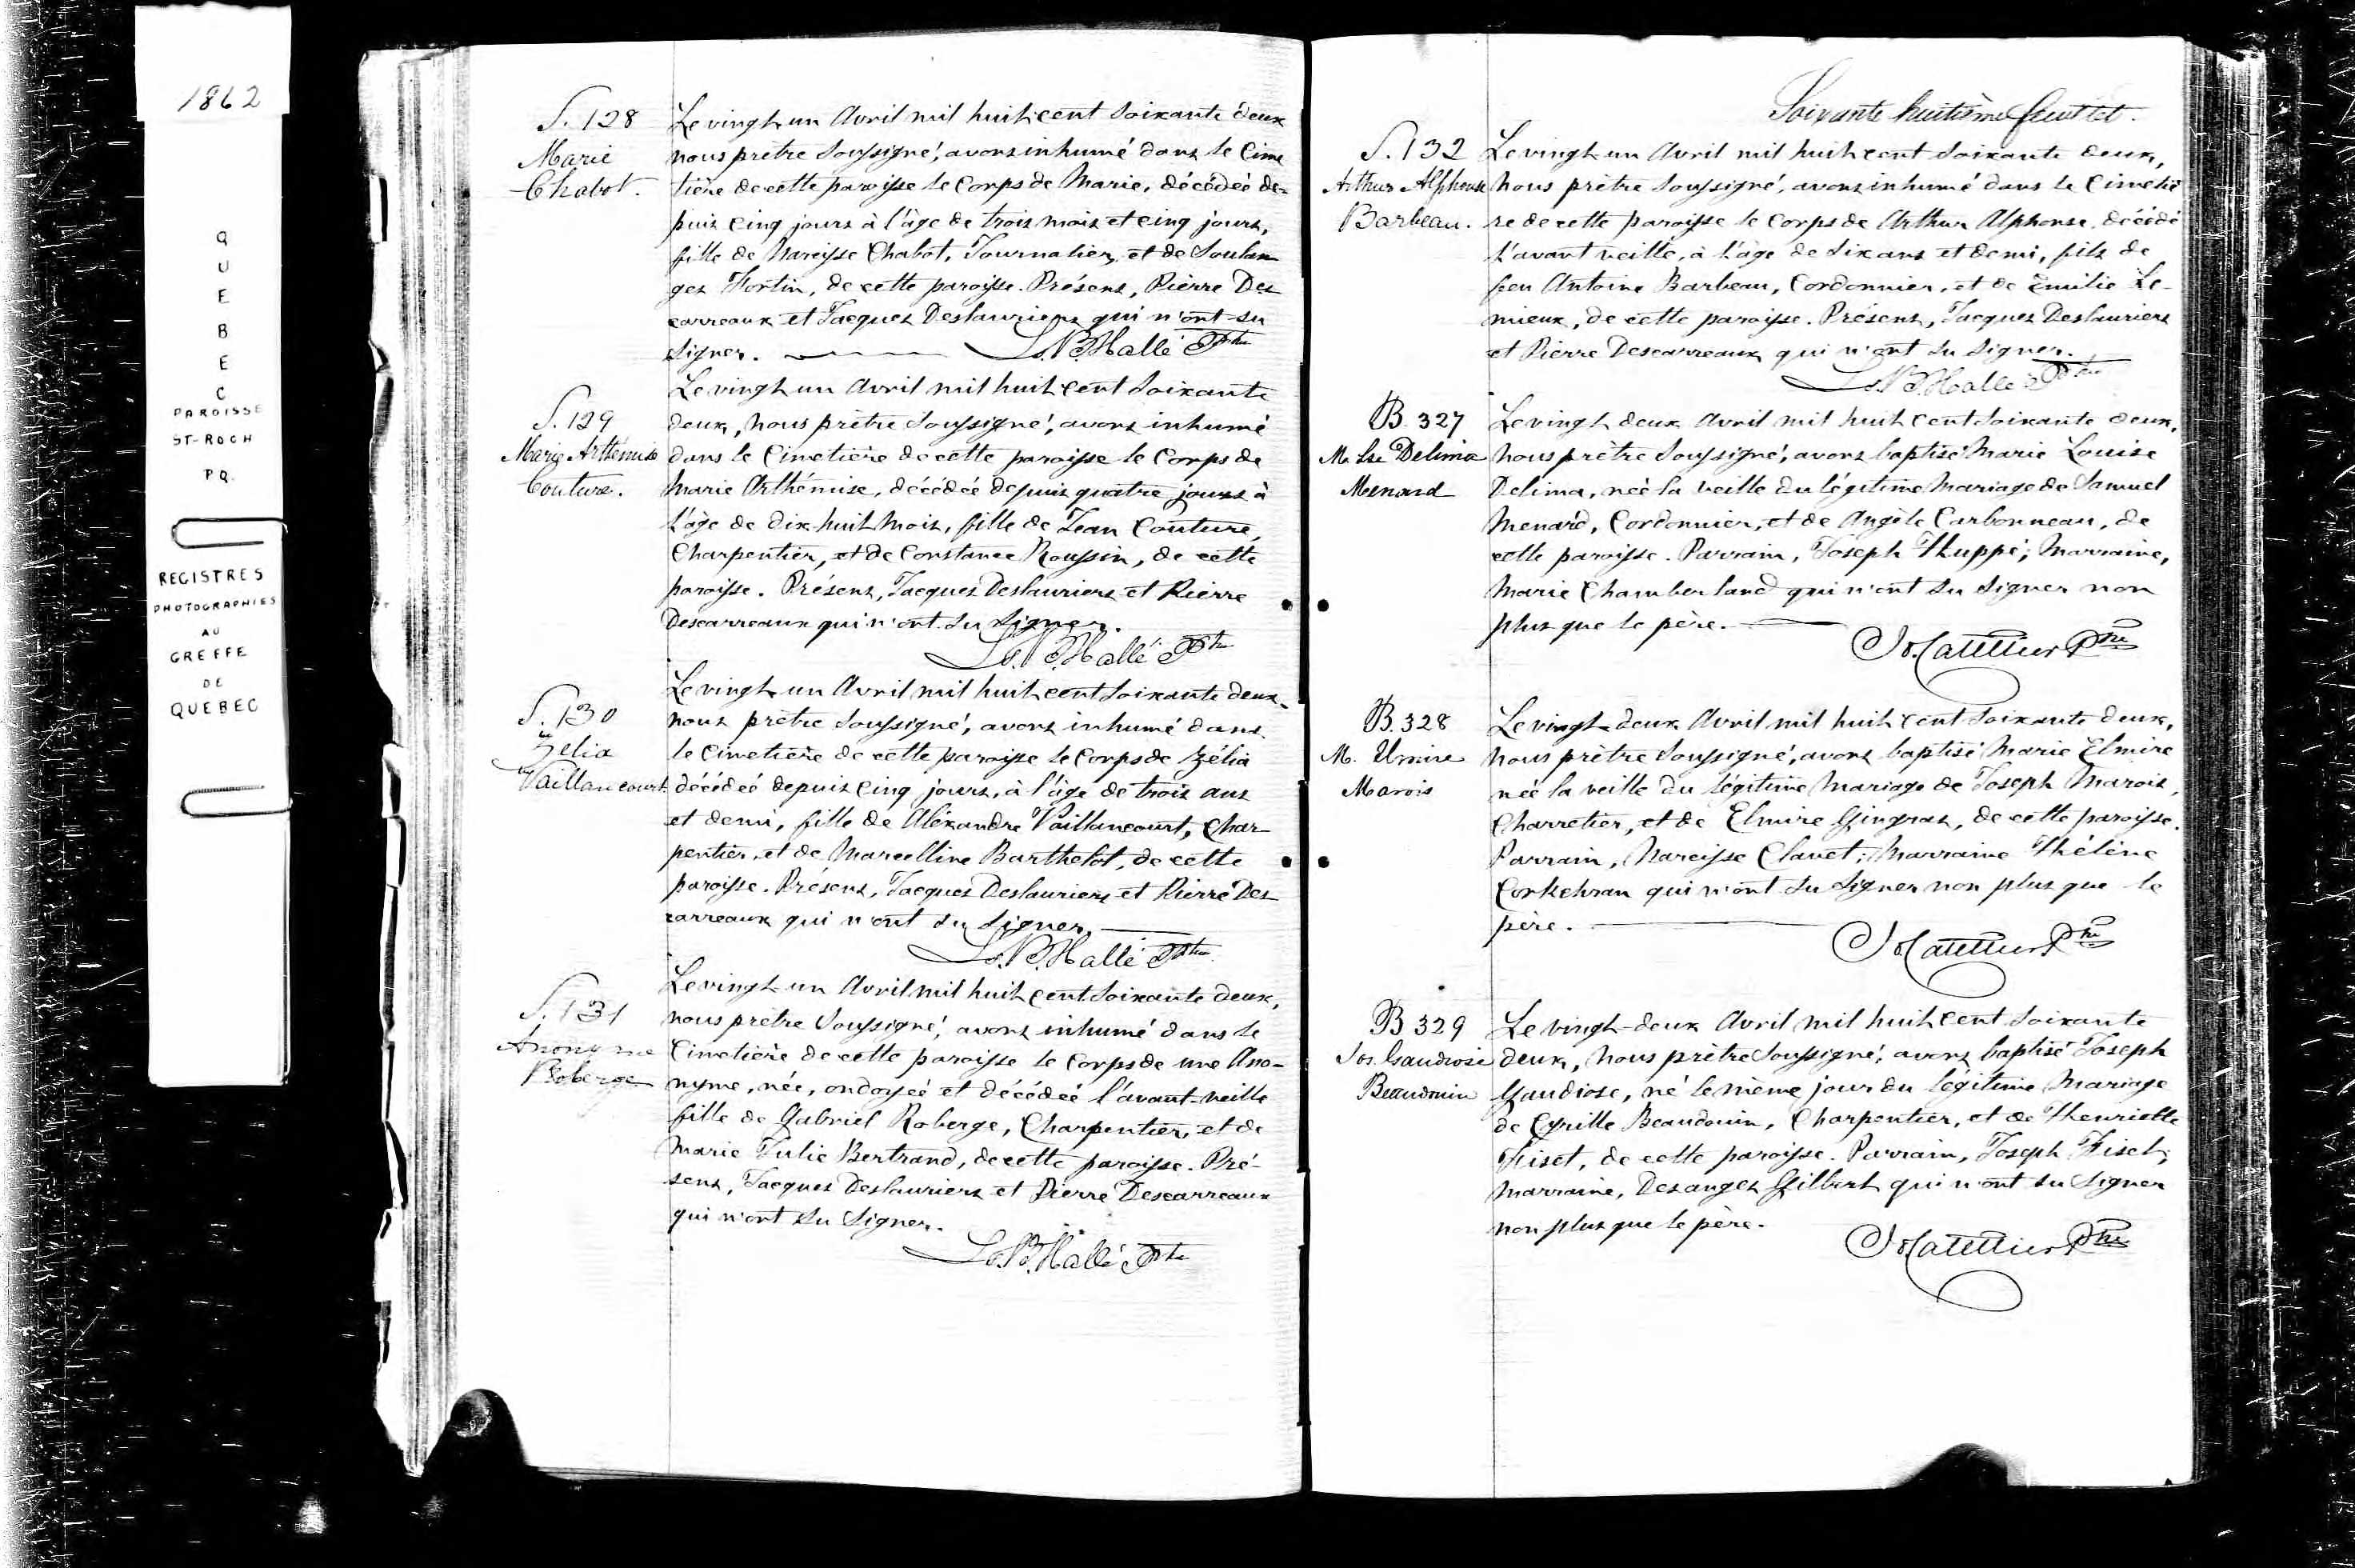 1862
QUEBEC
PAROISSE
ST-ROCH
PQ.
REGISTRES
PHOTOGRAPHIES
AU
GREFFE
DE
QUEBEC
S. 128
Marie
Chabot.
Le vingt un Avril mil huit cent soixante deux
nous prêtre soussigné, avons inhumé dans le Cime
tière de cette paroisse le Corps de Marie, décédée de-
puis cinq jours à l'âge de trois mois et cinq jours,
fille de Narcisse Chabot, Journalier, et de Soulan
ges Fortin, de cette paroisse. Présens, Pierre Des
carreaux et Jacques Deslauriers qui n'ont su
signer. Ls. B. Hallé Ptre
S. 129
Marie Arthémise
Couture.
Le vingt un Avril mil huit cent soixante
deux, nous prêtre soussigné, avons inhumé
dans le Cimetière de cette paroisse le Corps de
Marie Arthémise, décédée depuis quatre jours à
l'âge de dix-huit mois, fille de Jean Couture,
Charpentier, et de Constance Roussin, de cette
paroisse. Présens, Jacques Deslauriers et Pierre
Descarreaux qui n'ont su signer.
Ls. B. Hallé Ptre
S. 130
Zélia
Vaillancourt
Le vingt un Avril mil huit cent soixante deux,
nous prêtre soussigné, avons inhumé dans
le Cimetière de cette paroisse le Corps de Zélia
décédée depuis cinq jours, à l'âge de trois ans
et demi, fille de Aléxandre Vaillancourt, Char-
pentier, et de Marcelline Barthelot, de cette
paroisse. Présens, Jacques Deslauriers et Pierre Des
carreaux qui n'ont su signer.
Ls. B. Hallé Ptre
S. 131
Anonyme
Roberge
Le vingt un Avril mil huit cent soixante deux,
nous prêtre soussigné, avons inhumé dans le
Cimetière de cette paroisse le Corps de une Ano-
nyme, née, ondoyée et décédée l'avant-veille
fille de Gabriel Roberge, Charpentier, et de
Marie Julie Bertrand, de cette paroisse. Pré-
sens, Jacques Deslauriers et Pierre Descarreaux
qui n'ont su signer.
Ls. B. Hallé Ptre
Soixante huitième feuillet.
S. 132
Arthur Alphonse
Barbeau.
Le vingt un Avril mil huit cent soixante deux,
nous prêtre soussigné, avons inhumé dans le Cimetiè
re de cette paroisse le Corps de Arthur Alphonse, décédé
l'avant veille, à l'âge de six ans et demi, fils de
feu Antoine Barbeau, Cordonnier, et de Emilie Le-
mieux, de cette paroisse. Présens, Jacques Deslauriers
et Pierre Descarreaux qui n'ont su signer.
Ls. B. Hallé Ptre
B. 327
M. Lse Delima
Menard
Le vingt deux Avril mil huit cent soixante deux,
nous prêtre soussigné, avons baptisé Marie Louise
Delima, née la veille du légitime mariage de Samuel
Menard, Cordonnier, et de Angèle Carbonneau, de
cette paroisse. Parrain, Joseph Huppé; Marraine,
Marie Chamberland qui n'ont su signer non
plus que le père.
B. 328
M. Elmire
Marois
Le vingt-deux Avril mil huit cent soixante deux,
nous prêtre soussigné, avons baptisé Marie Elmire
née la veille du légitime mariage de Joseph Marois,
Charretier, et de Elmire Gingras, de cette paroisse.
Parrain, Narcisse Clavet; Marraine Hélène
Corkehran qui n'ont su signer non plus que le
père.
B 329
Jos. Gaudiose
Beaudouin
Le vingt-deux Avril mil huit cent soixante
deux, nous prêtre soussigné, avons baptisé Joseph
Gaudiose, né le même jour du légitime mariage
de Cyrille Beaudouin, Charpentier, et de Henriette
Fiset, de cette paroisse. Parrain, Joseph Fiset;
Marraine, Desanges Gilbert qui n'ont su signer
non plus que le père.